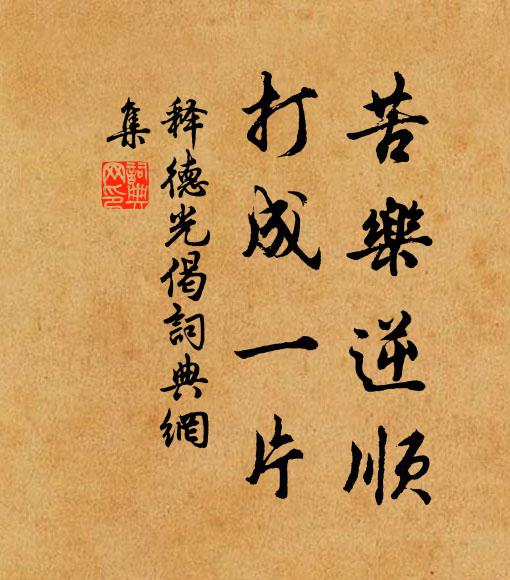 苦樂逆順
打成一片
释德光偈詞典網
集
詞典
网印